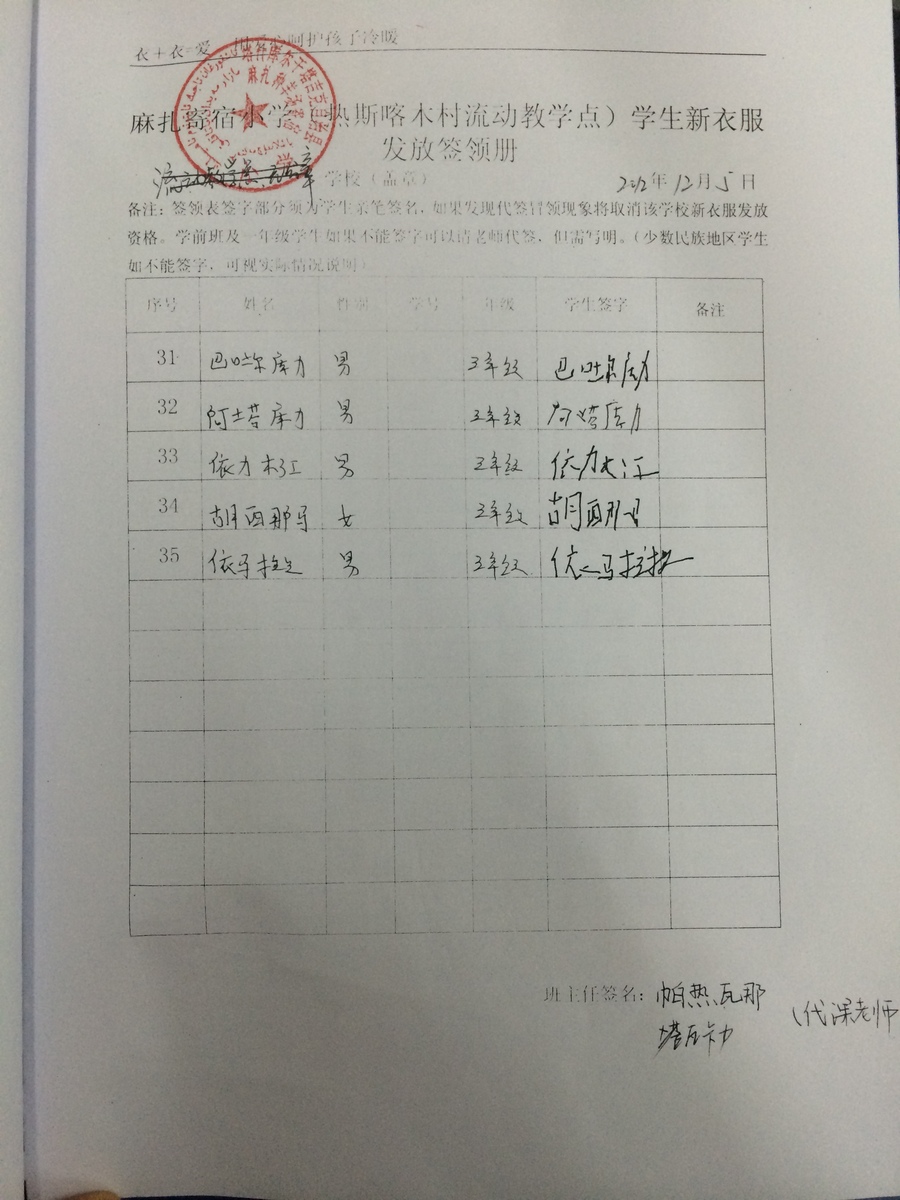 衣+衣=爱 呵护孩子冷暖
麻扎寄宿小学(热斯喀木村流动教学点)学生新衣服
发放签领册
学校(盖章) 2012年12月5日
备注:签领表签字部分须为学生亲笔签名,如果发现代签冒领现象将取消该学校新衣服发放
资格。学前班及一年级学生如果不能签字可以请老师代签,但需写明。(少数民族地区学生
如不能签字,可视实际情况说明)
序号 姓名 性别 学号 年级 学生签字 备注
31 巴吐尔库力 男 3年级 巴吐尔库力
32 阿土塔库力 男 3年级
33 依力木江 男 3年级 依力木江
34 胡西那马 女 3年级 胡西那马
35 依马拉 男 3年级 依马拉
班主任签名:帕热瓦那
塔瓦卡力 (代课老师